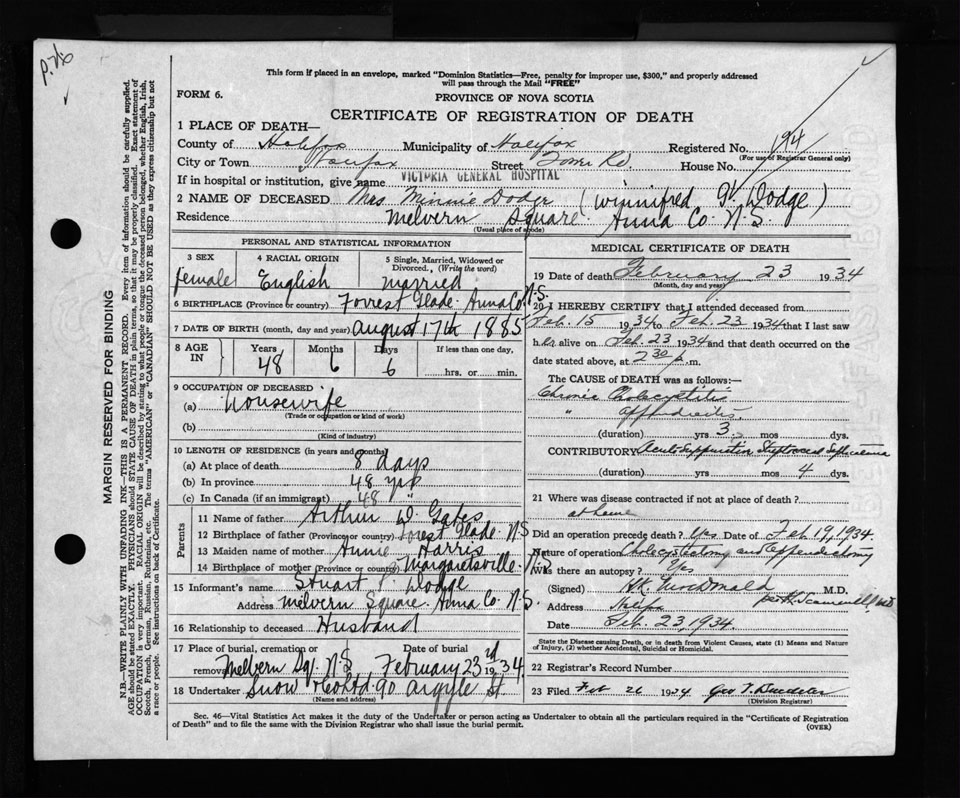 p.26
This form if placed in an envelope, marked "Dominion Statistics—Free, penalty for improper use, $300," and properly addressed
will pass through the Mail "FREE"
FORM 6.
PROVINCE OF NOVA SCOTIA
CERTIFICATE OF REGISTRATION OF DEATH
1 PLACE OF DEATH—
County of Halifax Municipality of Halifax Registered No. 194
(For use of Registrar General only)
City or Town Halifax Street Tower Rd House No.
If in hospital or institution, give name VICTORIA GENERAL HOSPITAL
2 NAME OF DECEASED Mrs Minnie Dodge (Winnifred Dodge)
Residence Melvern Square Anna Co N.S.
(Usual place of abode)
PERSONAL AND STATISTICAL INFORMATION
3 SEX 4 RACIAL ORIGIN 5 Single, Married, Widowed or Divorced, (Write the word)
female English married
6 BIRTHPLACE (Province or country) Forrest Glade Anna Co N.S.
7 DATE OF BIRTH (month, day and year) August 17th 1885
8 AGE IN Years Months Days If less than one day,
48 6 6 hrs. or min.
9 OCCUPATION OF DECEASED
(a) Housewife
(Trade or occupation or kind of work)
(b)
(Kind of industry)
10 LENGTH OF RESIDENCE (in years and months)
(a) At place of death 8 days
(b) In province 48 yrs
(c) In Canada (if an immigrant) 48 "
Parents
11 Name of father Arthur D. Gates
12 Birthplace of father (Province or country) Forest Glade N.S
13 Maiden name of mother Annie Harris
14 Birthplace of mother (Province or country) Margaretsville N.S
15 Informant's name Stuart Dodge
Address Melvern Square Anna Co N.S.
16 Relationship to deceased Husband
17 Place of burial, cremation or removal Date of burial
Melvern Sq. N.S February 23rd 1934
18 Undertaker Snow & Co Ltd 90 Argyle St.
(Name and address)
MEDICAL CERTIFICATE OF DEATH
19 Date of death February 23 1934
(Month, day and year)
20 I HEREBY CERTIFY that I attended deceased from
Feb. 15 1934 to Feb. 23 1934 that I last saw
her alive on Feb. 23 1934 and that death occurred on the
date stated above, at 2 30 p.m.
The CAUSE OF DEATH was as follows:
Chronic Cholecystitis
" appendicitis
(duration) yrs 3 mos dys.
CONTRIBUTORY Acute Suppurative Streptococcal Septicaemia
(duration) yrs mos 4 dys.
21 Where was disease contracted if not at place of death?
at home
Did an operation precede death? Yes Date of Feb 19, 1934.
Nature of operation Cholecystectomy and appendectomy
Was there an autopsy? Yes
(Signed) H.K. MacDonald M.D.
Address Halifax
Date Feb. 23 1934.
State the Disease causing Death, or in death from Violent Causes, state (1) Means and Nature
of Injury, (2) whether Accidental, Suicidal or Homicidal.
22 Registrar's Record Number
23 Filed Feb 26 1934 Geo T.
(Division Registrar)
Sec. 46—Vital Statistics Act makes it the duty of the Undertaker or person acting as Undertaker to obtain all the particulars required in the "Certificate of Registration
of Death" and to file the same with the Division Registrar who shall issue the burial permit.
(OVER)
MARGIN RESERVED FOR BINDING
N.B.—WRITE PLAINLY WITH UNFADING INK—THIS IS A PERMANENT RECORD. Every item of information should be carefully supplied.
AGE should be stated EXACTLY. PHYSICIANS should STATE CAUSE OF DEATH in plain terms, so that it may be properly classified. Exact statement of
OCCUPATION is very important. RACIAL ORIGIN will be described by stating to what people or tongue the deceased person belonged, whether English, Irish,
Scotch, French, German, Russian, Ruthenian, etc. The terms "AMERICAN" or "CANADIAN" SHOULD NOT BE USED as they express citizenship but not
a race or people. See instructions on back of Certificate.